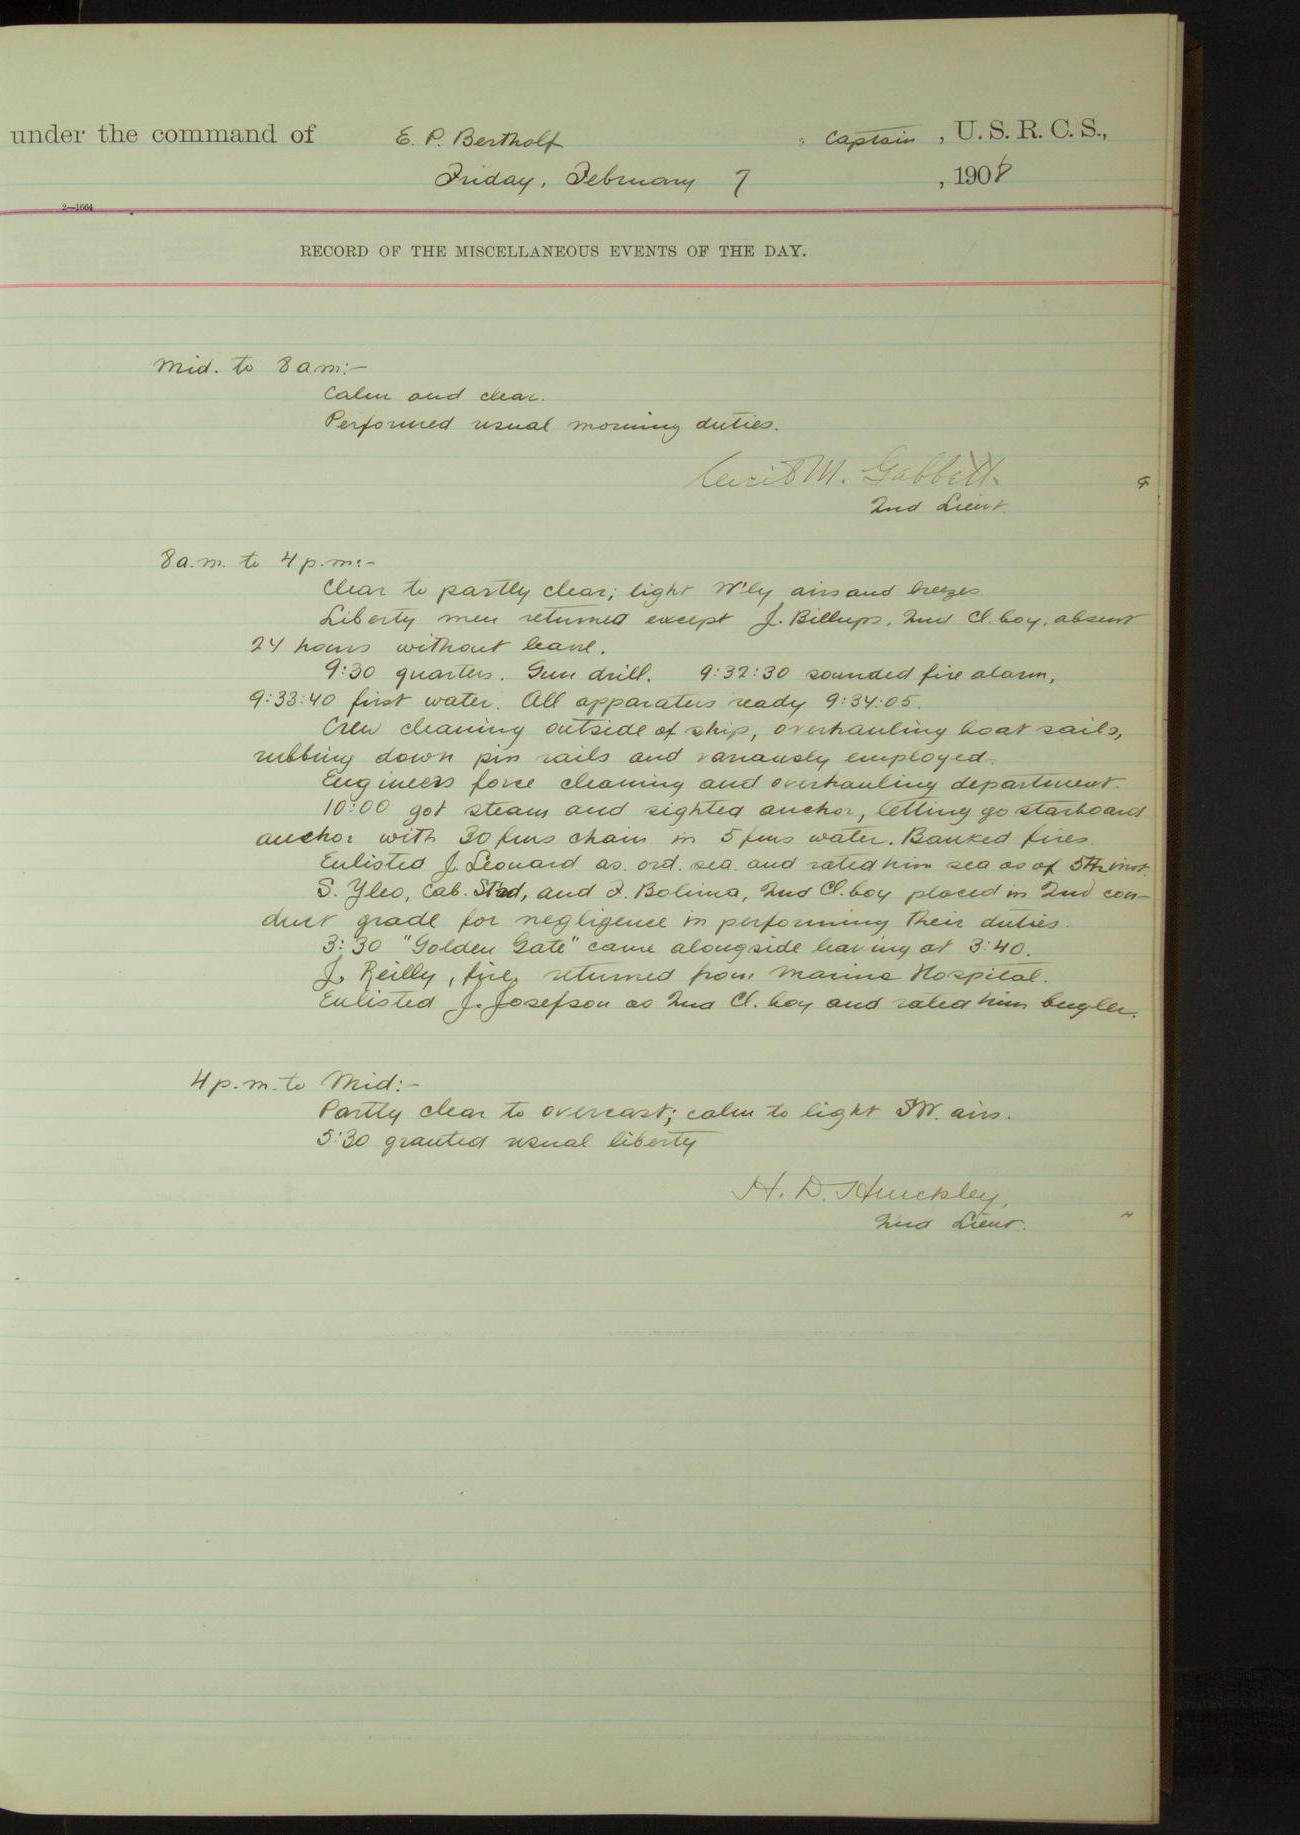 under the command of E. P. Bertholf, Captain, U. S. R. C. S.,
Friday, February 7, 1908
2—1664
RECORD OF THE MISCELLANEOUS EVENTS OF THE DAY.
Mid. to 8 a.m:-
Calm and clear.
Performed usual morning duties.
Cecil M. Gabbett.
2nd Lieut.
8 a.m. to 4 p.m:-
Clear to partly clear; light W'ly airs and breezes.
Liberty men returned except J. Billups, 2nd Cl. boy, absent
24 hours without leave.
9:30 quarters. Gun drill. 9:32:30 sounded fire alarm,
9:33:40 first water. All apparatus ready 9:34:05.
Crew cleaning outside of ship, overhauling boat sails,
rubbing down pin rails and variously employed.
Engineers force cleaning and overhauling department.
10:00 got steam and sighted anchor, letting go starboard
anchor with 30 fms chain in 5 fms water. Banked fires.
Enlisted J. Leonard as ord. sea. and rated him sea as of 5th inst.
S. Yleo, Cab. Std, and F. Bolima, 2nd Cl. boy placed in 2nd con-
duct grade for negligence in performing their duties.
3:30 "Golden Gate" came alongside leaving at 3:40.
J. Reilly, fire, returned from Marine Hospital.
Enlisted J. Josefson as 2nd Cl. boy and rated him bugler.
4 p.m. to Mid:-
Partly clear to overcast; calm to light SW. airs.
5:30 granted usual liberty
H. D. Hinckley,
2nd Lieut.